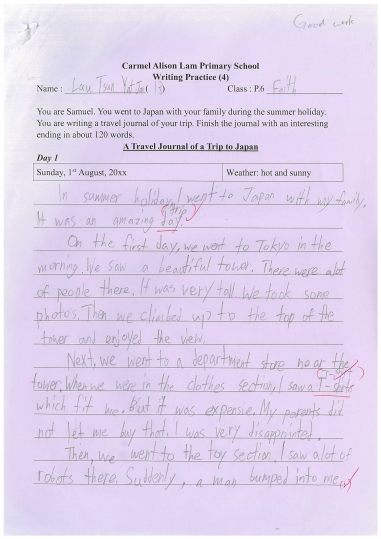 Good work
Carmel Alison Lam Primary School
Writing Practice (4)
Name : Lau Tsun Yat Joe (13) Class : P.6 Faith
You are Samuel. You went to Japan with your family during the summer holiday.
You are writing a travel journal of your trip. Finish the journal with an interesting
ending in about 120 words.
A Travel Journal of a Trip to Japan
Day 1
Sunday, 1st August, 20xx Weather: hot and sunny
In summer holiday, I went to Japan with my family.
trip
It was an amazing day.
On the first day, we went to Tokyo in the
morning. We saw a beautiful tower. There were alot
of people there. It was very tall. We took some
photos. Then we climbed up to the top of the
tower and enjoyed the view.
Next, we went to a department store near the
T-shirt
tower. When we were in the clothes section, I saw a T-shirts
which fit me. But it was expensie. My parents did
not let me buy that. I was very disappointed.
Then, we went to the toy section. I saw alot of
robots there. Suddenly, a man bumped into me.